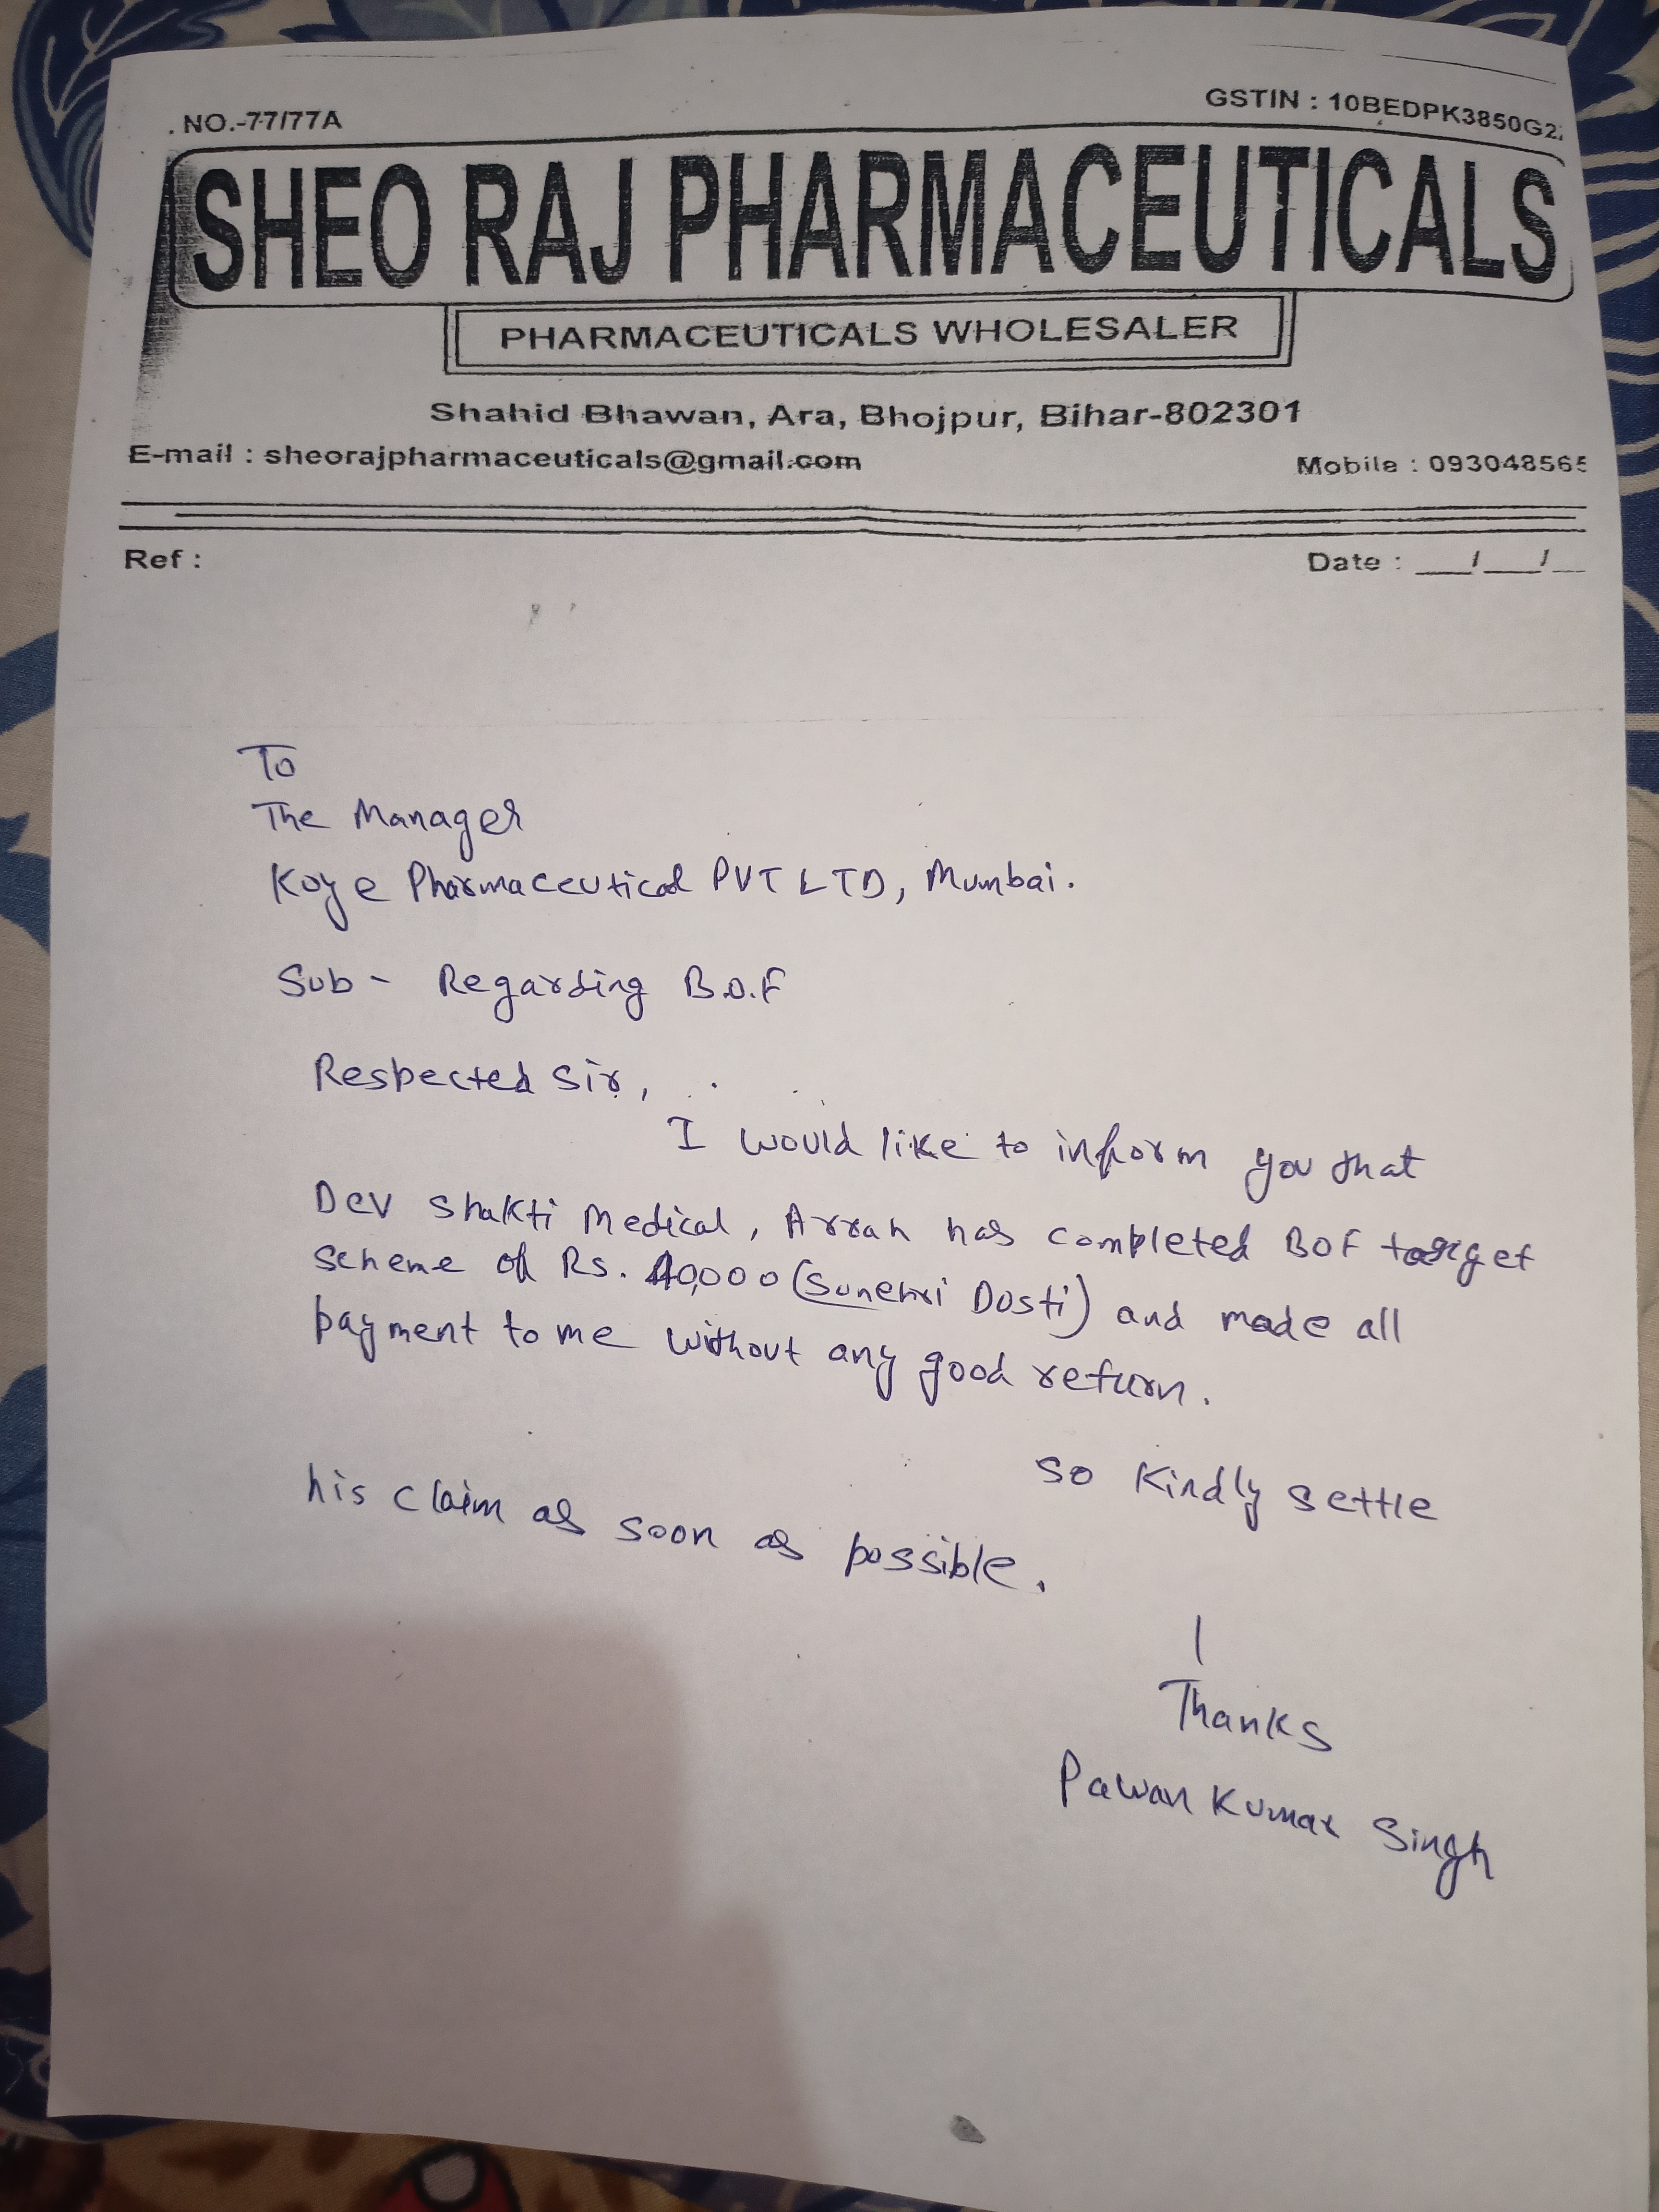 . NO.-77/77A
GSTIN : 10BEDPK3850G2
SHEO RAJ PHARMACEUTICALS
PHARMACEUTICALS WHOLESALER
Shahid Bhawan, Ara, Bhojpur, Bihar-802301
E-mail : sheorajpharmaceuticals@gmail.com
Mobile : 093048565
Ref :
Date : __/__/__
To
The Manager
Koye Pharmaceutical PVT LTD, Mumbai.
Sub - Regarding B.O.F
Respected Sir,
I would like to inform you that
Dev Shakti Medical, Arrah has completed BOF target
scheme of Rs. 40,000 (Sunehri Dosti) and made all
payment to me without any good return.
So Kindly settle
his claim as soon as possible.
Thanks
Pawan Kumar Singh